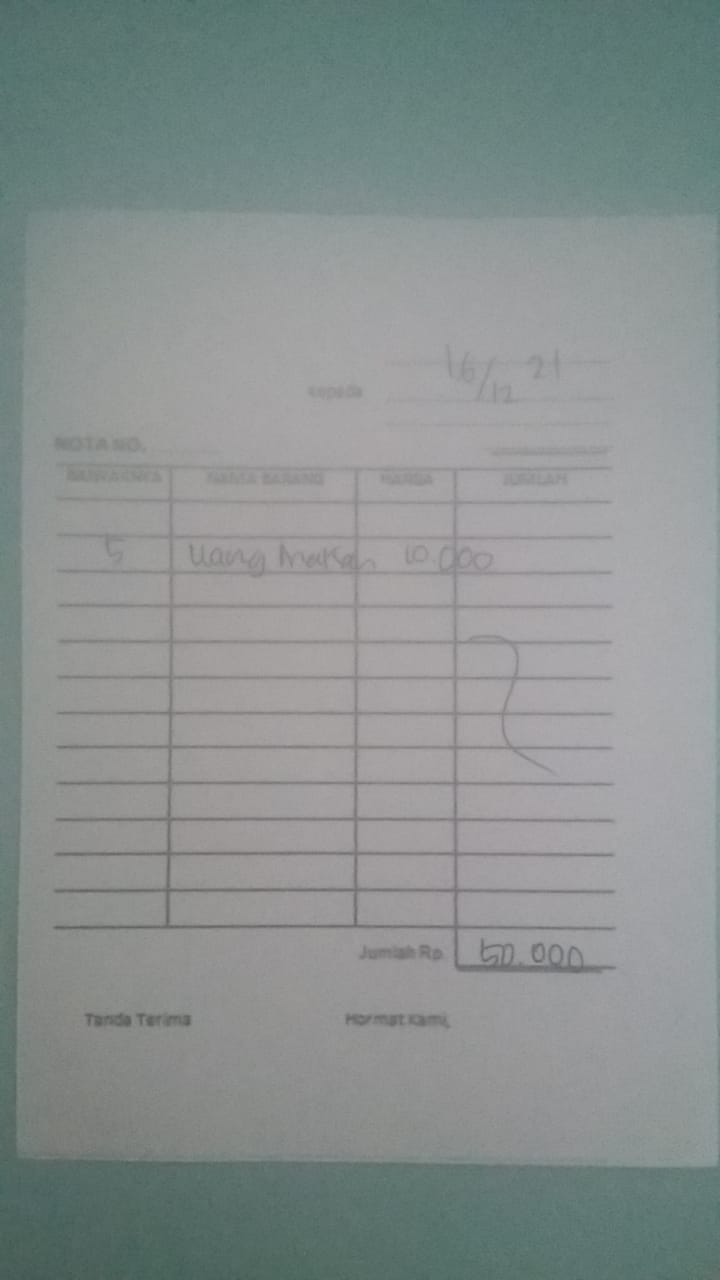 16/12 21
Kepada
NOTA NO.
BANYAKNYA NAMA BARANG HARGA JUMLAH
5 Uang Makan 10.000
Jumlah Rp 50.000
Tanda Terima Hormat Kami,